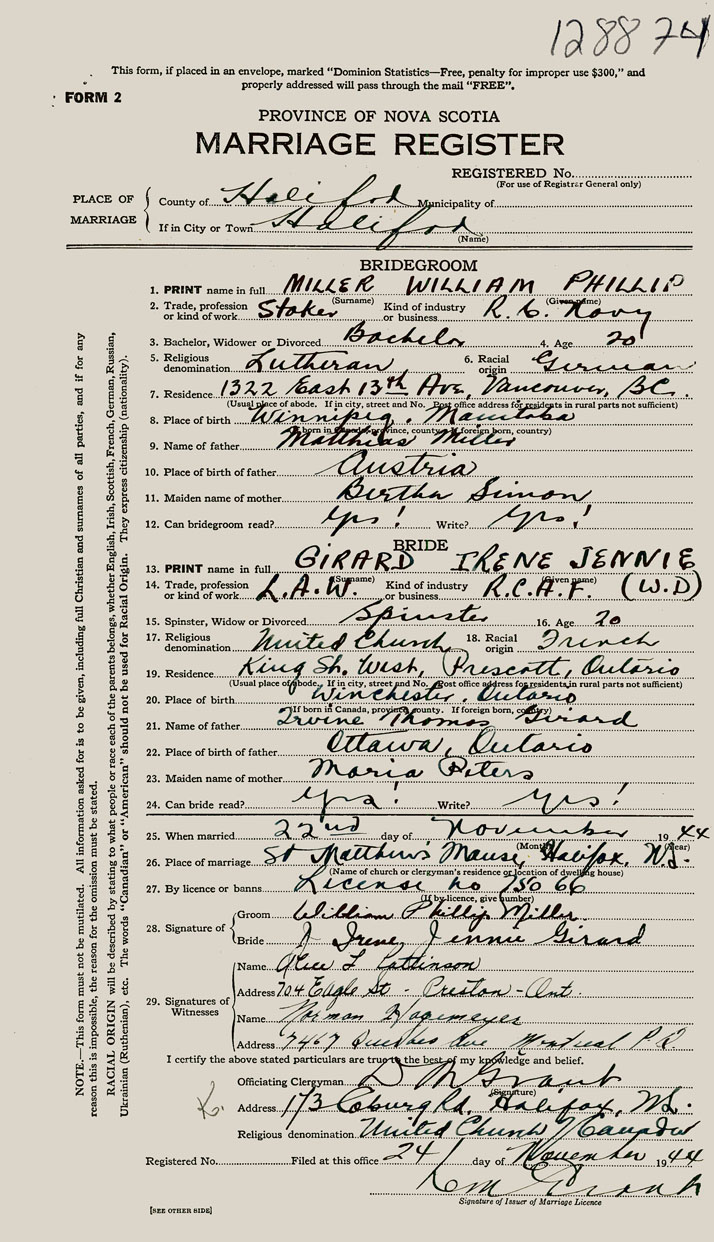 128874
This form, if placed in an envelope, marked "Dominion Statistics—Free, penalty for improper use $300," and
properly addressed will pass through the mail "FREE".
FORM 2
PROVINCE OF NOVA SCOTIA
MARRIAGE REGISTER
REGISTERED No.
(For use of Registrar General only)
PLACE OF MARRIAGE
County of Halifax Municipality of
If in City or Town Halifax
(Name)
BRIDEGROOM
1. PRINT name in full MILLER WILLIAM PHILLIP
(Surname) (Given name)
2. Trade, profession or kind of work Stoker Kind of industry or business R.C. Navy
3. Bachelor, Widower or Divorced Bachelor 4. Age 20
5. Religious denomination Lutheran 6. Racial origin German
7. Residence 1322 East 13th Ave, Vancouver, BC.
(Usual place of abode. If in city, street and No. Post office address for residents in rural parts not sufficient)
8. Place of birth Winnipeg, Manitoba
(If born in Canada, province, county. If foreign born, country)
9. Name of father Matthias Miller
10. Place of birth of father Austria
11. Maiden name of mother Bertha Simon
12. Can bridegroom read? Yes! Write? Yes!
BRIDE
13. PRINT name in full GIRARD IRENE JENNIE
(Surname) (Given name)
14. Trade, profession or kind of work L.A.W. Kind of industry or business R.C.A.F. (W.D)
15. Spinster, Widow or Divorced Spinster 16. Age 20
17. Religious denomination United Church 18. Racial origin French
19. Residence King St. West, Prescott, Ontario
(Usual place of abode. If in city, street and No. Post office address for residents in rural parts not sufficient)
20. Place of birth Winchester, Ontario
(If born in Canada, province, county. If foreign born, country)
21. Name of father Irvine Thomas Girard
22. Place of birth of father Ottawa, Ontario
23. Maiden name of mother Maria Peters
24. Can bride read? Yes! Write? Yes!
25. When married 22nd day of November 1944
(Month) (Year)
26. Place of marriage St Matthew's Manse, Halifax, N.S.
(Name of church or clergyman's residence or location of dwelling house)
27. By licence or banns License no 15066
(If by licence, give number)
28. Signature of
Groom William Phillip Miller
Bride J Irene Jennie Girard
29. Signatures of Witnesses
Name Alice L Pattinson
Address 704 Eagle St - Preston - Ont.
Name Norman Hagemeyer
Address 7467 Ave Montreal P.Q.
I certify the above stated particulars are true to the best of my knowledge and belief.
Officiating Clergyman D M Grant
(Signature)
Address 173 Coburg Rd. Halifax, N.S.
Religious denomination United Church of Canada
Registered No. Filed at this office 24 day of November 1944
Signature of Issuer of Marriage Licence
[SEE OTHER SIDE]
NOTE.—This form must not be mutilated. All information asked for is to be given, including full Christian and surnames of all parties, and if for any
reason this is impossible, the reason for the omission must be stated.
RACIAL ORIGIN will be described by stating to what people or race each of the parents belongs, whether English, Irish, Scottish, French, German, Russian,
Ukrainian (Ruthenian), etc. The words "Canadian" or "American" should not be used for Racial Origin. They express citizenship (nationality).